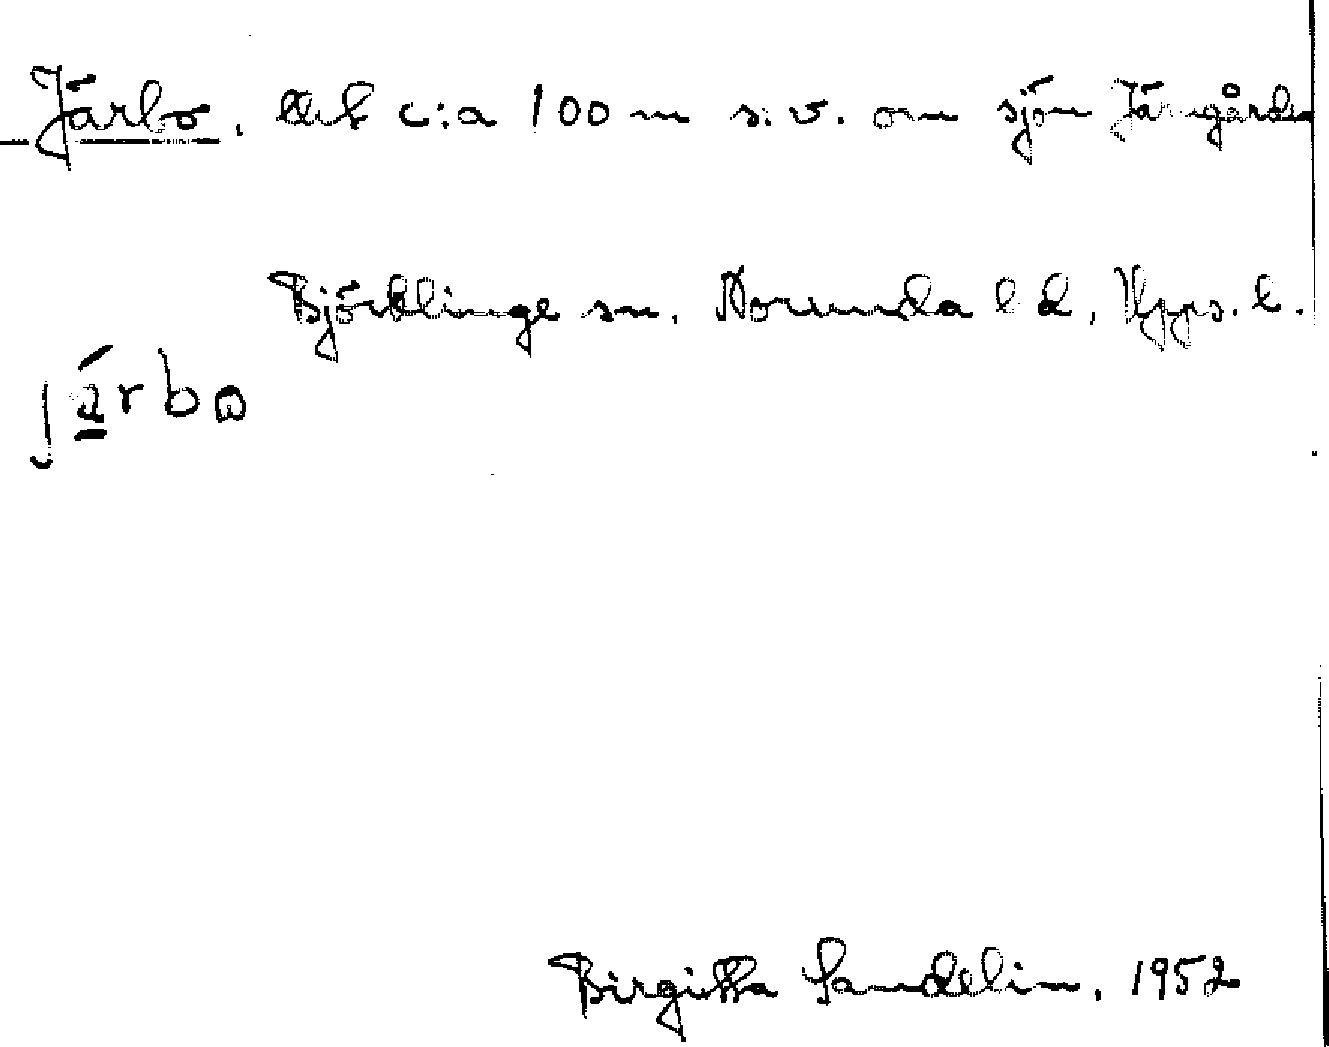 Järbo, c:a 100 m s.v. om sjön
Björklinge sn. Norunda l d, Upps. l.
järbω
Birgitta Sandelin, 1952